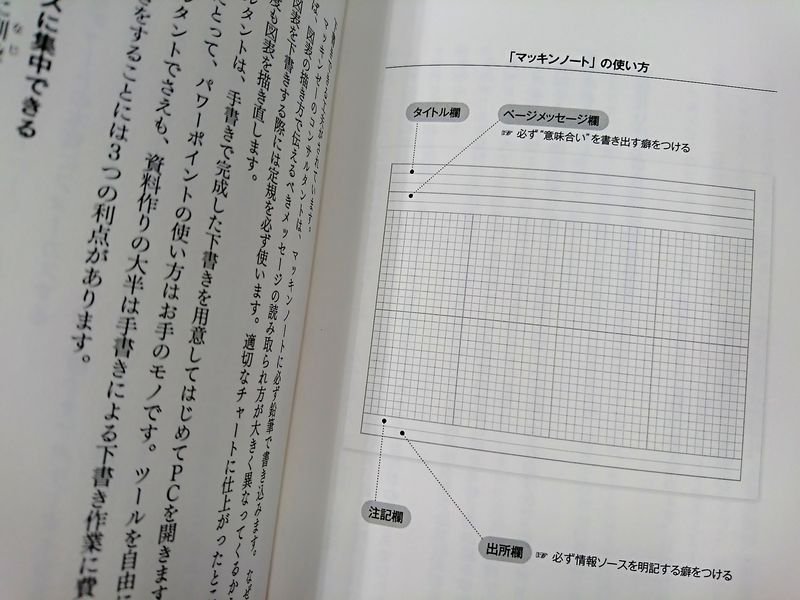 「マッキンノート」の使い方
タイトル欄
ページメッセージ欄
☞ 必ず“意味合い”を書き出す癖をつける
注記欄
出所欄
☞ 必ず情報ソースを明記する癖をつける
は、図表の描き方で伝えるべきメッセージの読み取られ方が大きく異なってくるか
マッキンゼーのコンサルタントは、マッキンノートに必ず鉛筆で書き込みます。なぜ
図表を下書きする際には定規を必ず使います。適切なチャートに仕上がったとこ
度も図表を描き直します。
タントは、手書きで完成した下書きを用意してはじめてPCを開きます
とって、パワーポイントの使い方はお手のモノです。ツールを自由に
タントでさえも、資料作りの大半は手書きによる下書き作業に費
をすることには3つの利点があります。
スに集中できる